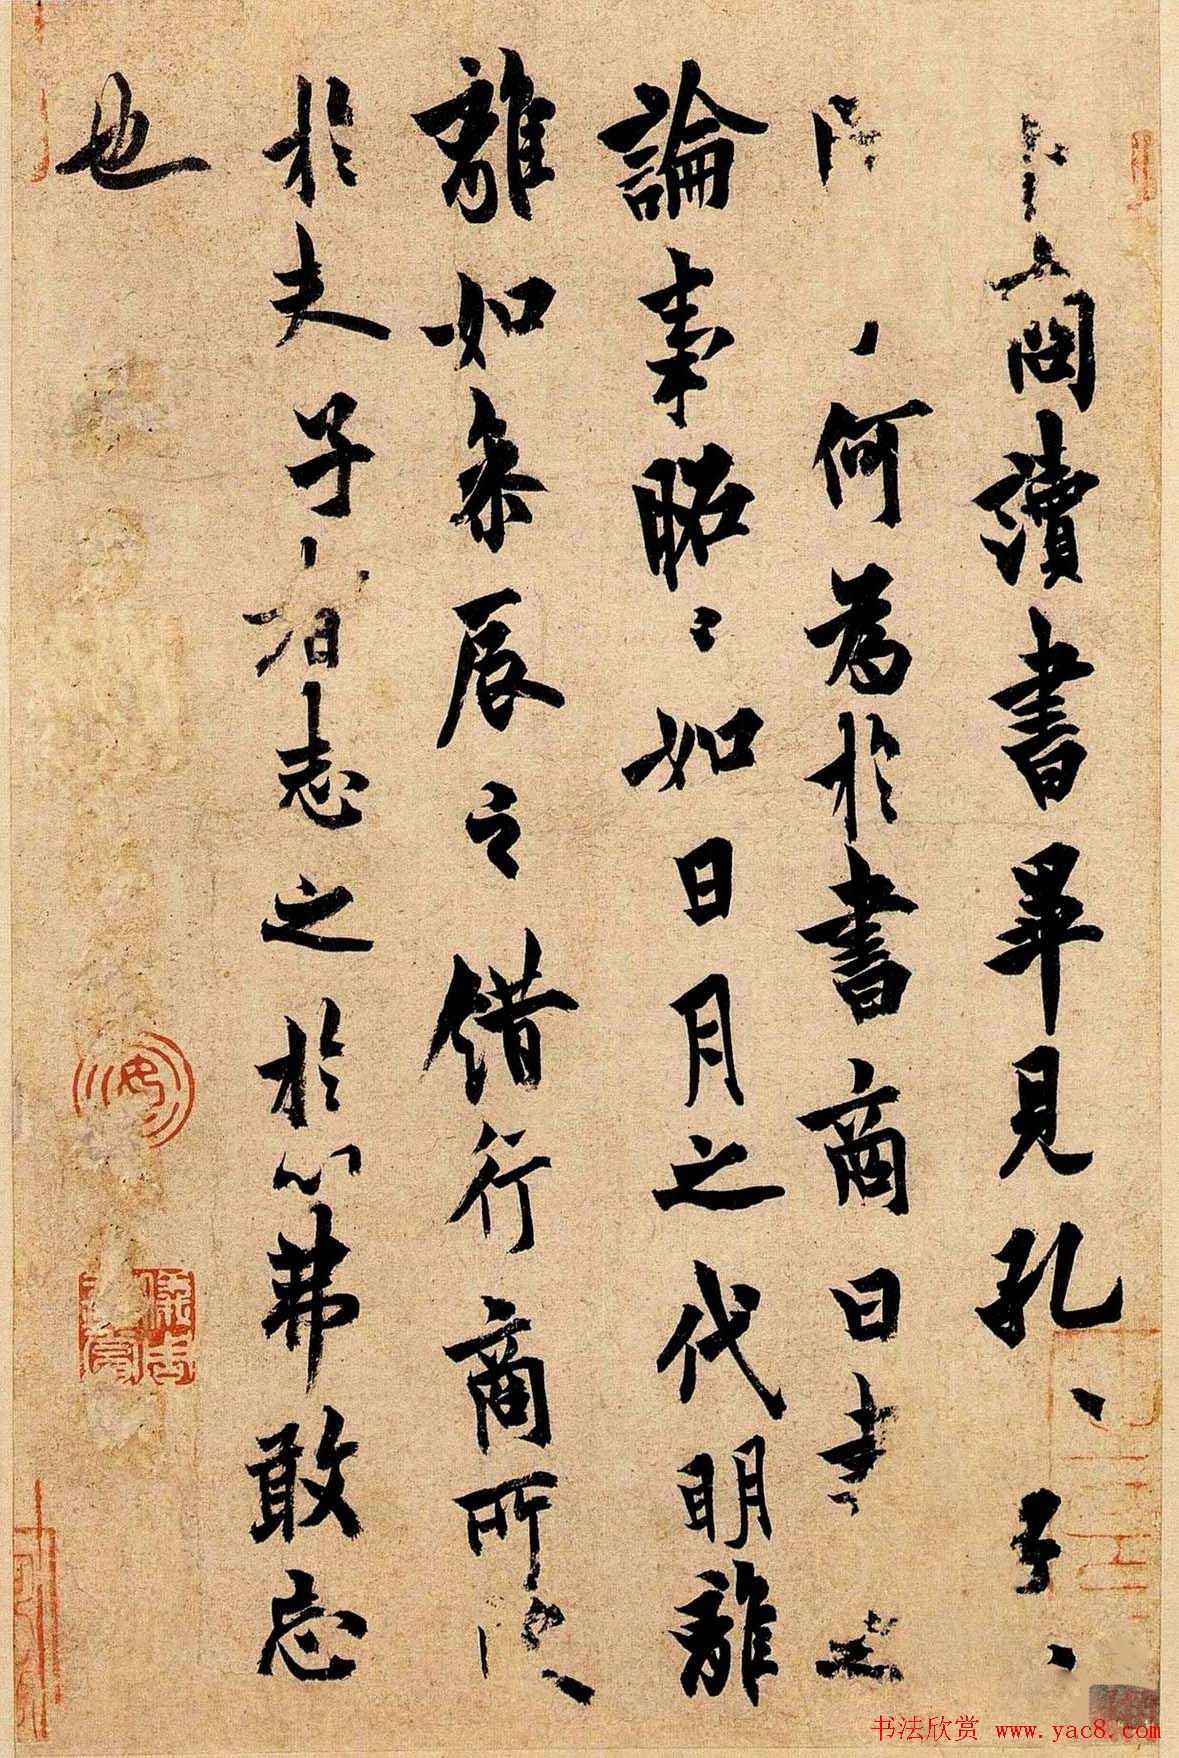 卜商讀書畢見孔〻子〻
問何為於書商曰書之
論事昭〻如日月之代明離
離如参辰之錯行商所
於夫子者志之於心弗敢忘
也
书法欣赏 www.yac8.com